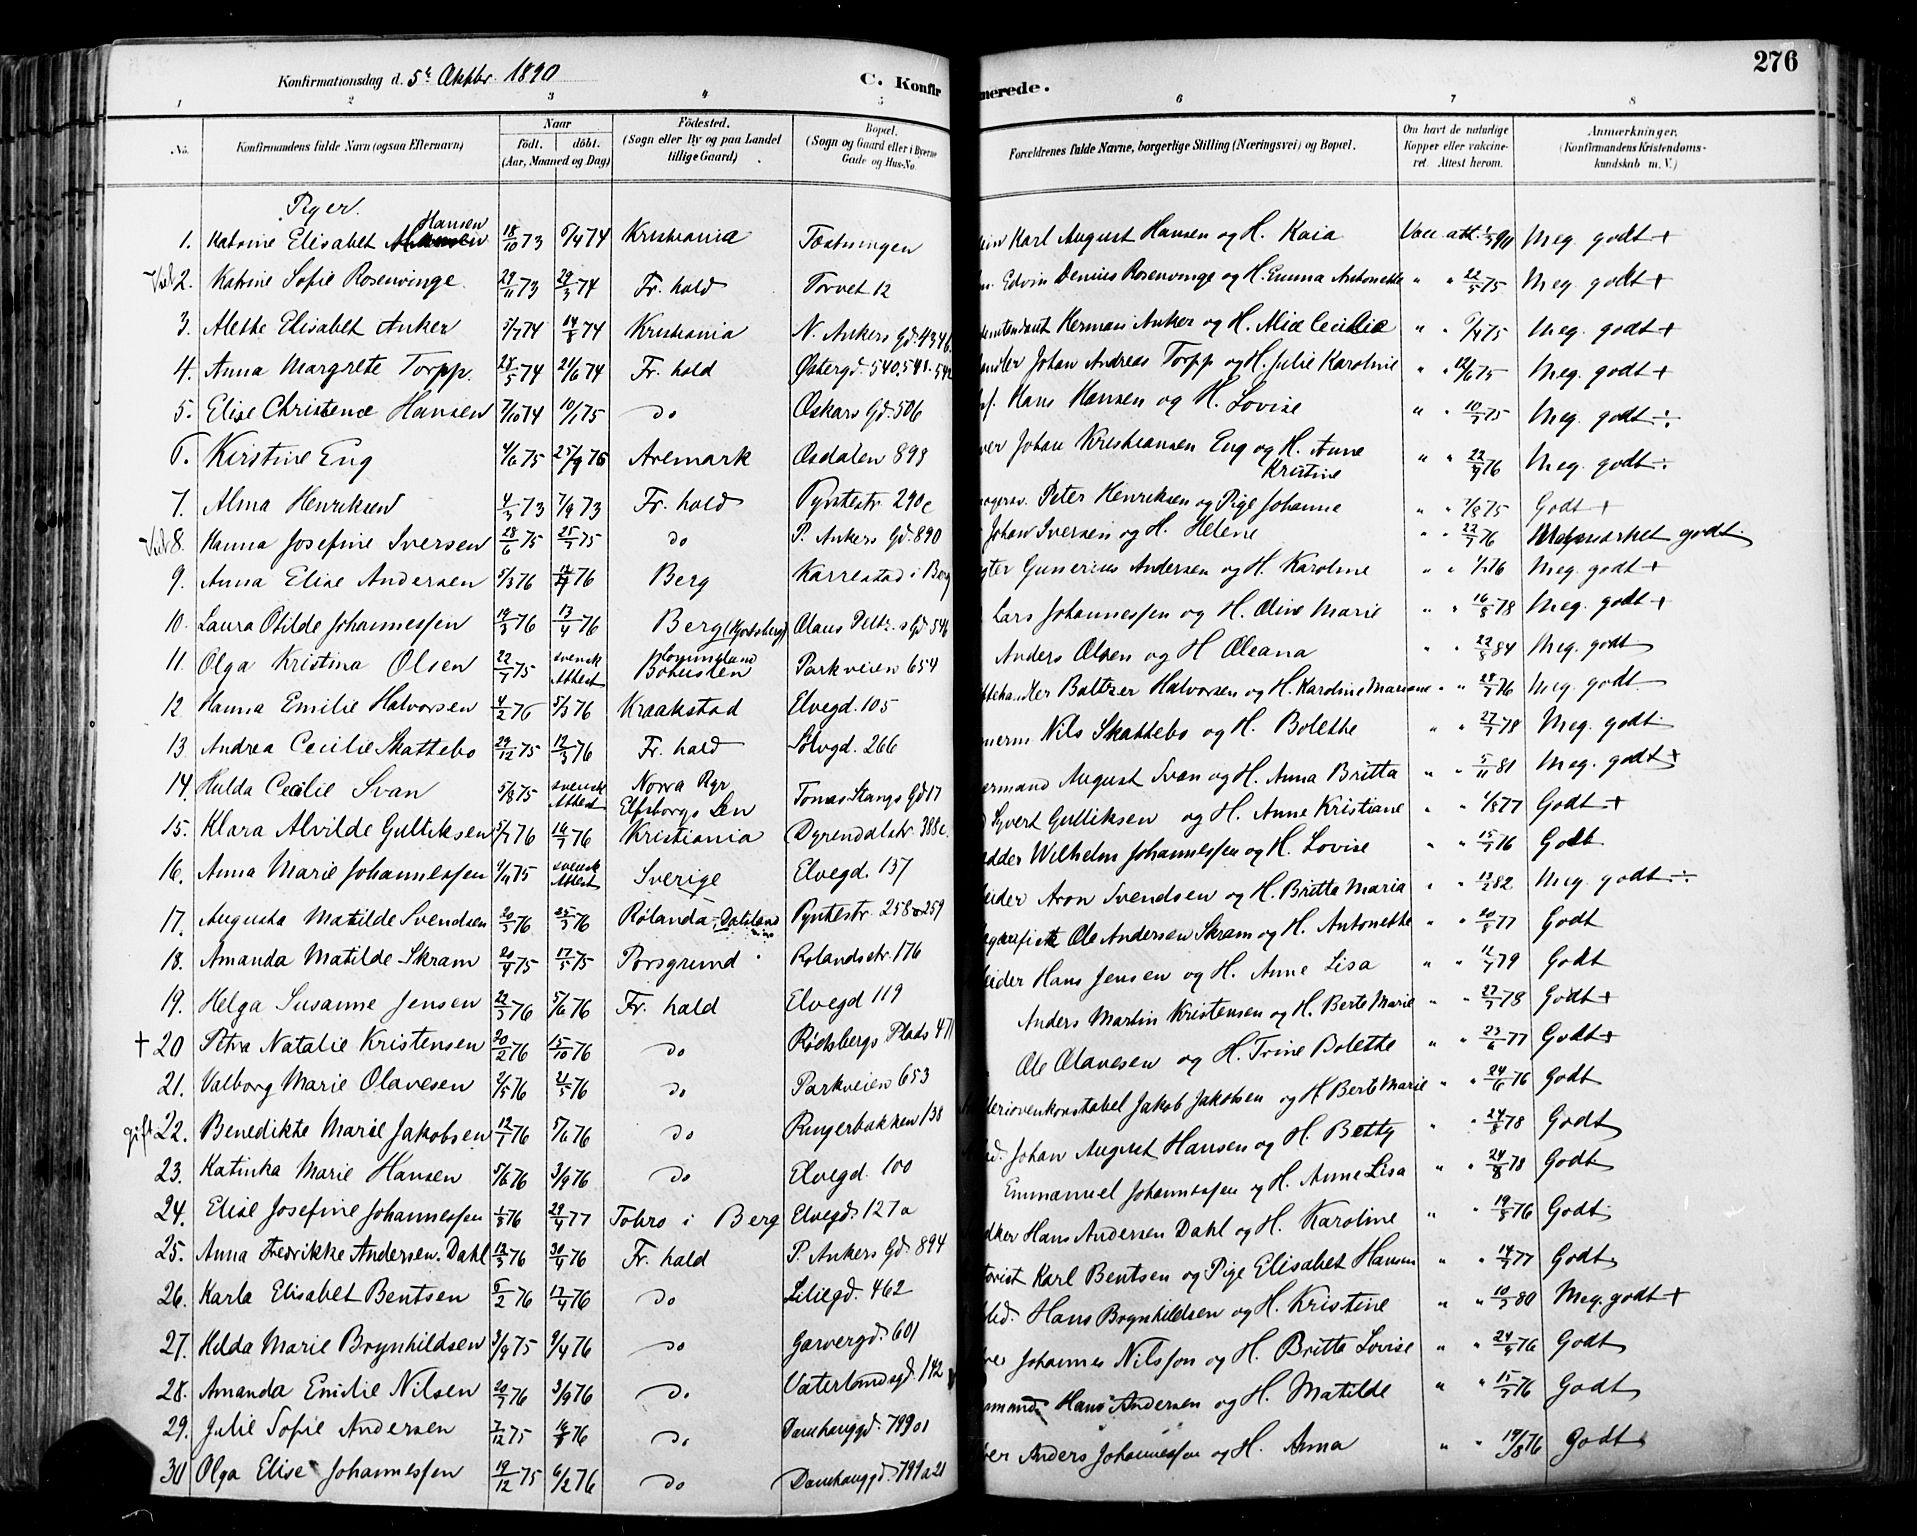 276
Konfirmationsdag d. 5te Oktbr. 1890
C. Konfir
merede.
1 2 3 4 5 6 7 8
No. Konfirmandens fulde Navn (ogsaa Efternavn) Naar födt. döbt. (Aar, Maaned og Dag) Födested. (Sogn eller By og paa Landet tillige Gaard) Bopæl. (Sogn og Gaard eller i Byerne Gade og Hus-No. Forældrenes fulde Navne, borgerlige Stilling (Næringsvei) og Bopæl. Om havt de naturlige Kopper eller vakcineret. Attest herom. Anmærkninger. (Konfirmandens Kristendomskundskab m. V.)
Piger.
1. Katrine Elisabet Hansen 18/10 73 6/4 74 Kristiania Fæstningen Karl August Hansen og H. Kaia Vacc. att. 90 Meg. godt +
2. Katrine Sofie Rosenvinge 29/11 73 29/3 74 Fr. hald Torvet 12 Edvin Denius Rosenvinge og H. Emma Antonette " " 22/5 75 Meg. godt +
3. Alethe Elisabet Anker 74 14/8 74 Kristiania N. Ankers Gd. 434 Herman Anker og H. Mix Cecilie " " 75 Meg. godt +
4. Anna Margrete Torpp. 28/5 74 21/6 74 Fr. hald Østergd. 540.541.542 Johan Andreas Torpp og H. Julie Karoline " " 12/6 75 Meg. godt +
5. Elise Christence Hansen 7/10 74 10/1 75 do Oskars Gd. 506 Hans Hansen og H. Lovise " " 10/7 75 Meg. godt ÷
6. Kirstine Eng 4/6 75 25/9 75 Aremark Osdalen 898 Johan Kristiansen Eng og H. Anne Kristine " " 22/9 76 Meg. godt ÷
7. Alma Henriksen 4/3 73 7/9 73 Fr. hald Pyntestr. 290c Peter Henriksen og Pige Johanne " " 7/8 75 Godt +
8. Hanna Josefine Iversen 28/6 75 25/7 75 do P. Ankers Gd. 890 Johan Iversen og H. Helene " " 22/7 76 godt
9. Anna Elise Andersen 5/3 76 76 Berg Karrestad i Berg Gunerius Andersen og H. Karoline " " 76 Meg. godt +
10. Laura Otilde Johannessen 19/3 76 13/4 76 Berg Olaus Gd 546 Lars Johannessen og H. Oline Marie " " 16/8 78 Meg. godt +
11. Olga Kristina Olsen 22/7 75 svensk Attest Bohuslen Parkveien 654 Anders Olsen og H Oleana " " 22/8 84 Meg. godt
12. Hanna Emilie Halvorsen 4/2 76 5/3 76 Kraakstad Elvegd. 105 Baltzer Halvorsen og H. Karoline Mariane " " 28/7 76 Meg. godt
13. Andrea Cecilie Skattebo 29/12 75 12/3 76 Fr. hald Sølvgd. 266 Nils Skattebo og H. Bolette " " 27/7 78 Meg. godt
14. Hilda Cecilie Svan 5/8 75 svensk Attest Norra Ryr Elfsborgs Len Tomas Stangs Gd 17 August Svan og H. Anna Britta " " 5/11 81 Meg. godt +
15. Klara Alvilde Gulliksen 5/7 76 16/7 76 Kristiania Dyrendalstr. 388c. Syvert Gulliksen og H. Anne Kristiane " " 1/8 77 Godt +
16. Anna Marie Johannessen 75 svensk Attest Sverige Elvegd. 157 Wilhelm Johannessen og H. Lovise " " 15/7 76 Godt
17. Augusta Matilde Svendsen 20/3 76 25/3 76 Rølanda - Dalsland Pyntestr. 258-259 Aron Svendsen og H. Britta Maria " " 82 Meg. godt ÷
18. Amanda Matilde Skram 20/4 75 17/5 75 Porsgrund Rolandsstr. 176 Ole Andersen Skram og H. Antonette " " 20/8 77 Godt
19. Helga Susanne Jensen 22/3 76 5/6 76 Fr. hald Elvegd 119 Hans Jensen og H. Anne Lisa " " 79 Godt
+ 20 Petra Natalie Kristensen 20/2 76 15/10 76 do Rødsbergs Plads 471 Anders Martin Kristensen og H. Berte Marie " " 27/7 78 Godt +
21. Valborg Marie Olavesen 2/5 76 21/5 76 do Parkveien 653 Ole Olavesen og H. Trine Bolette " " 25/6 77 Godt +
gift 22. Benedikte Marie Jakobsen 12/1 76 5/6 76 do Ringerbakken 138 Jakob Jakobsen og H Berte Marie " " 24/6 76 Godt
23. Katinka Marie Hansen 5/6 76 3/9 76 do Elvegd. 100 Johan August Hansen og H. Betty " " 24/8 78 Godt
24. Elise Josefine Johannessen 1/8 76 29/4 77 Tobro i Berg Elvegd. 127a Emmanuel Johannessen og H. Anne Lisa " " 24/8 78 Godt
25. Anna Fredrikke Andersen. Dahl 12/3 76 30/4 76 Fr. hald P. Ankers Gd. 894 Hans Andersen Dahl og H. Karoline " " 19/8 76 Godt
26. Karla Elisabet Bentsen 6/2 76 17/4 76 do Liliegd. 462 Karl Bentsen og Pige Elisabet Hansen " " 14/7 77 Godt
27. Hilda Marie Brynhildsen 3/9 75 9/4 76 do Garvergd. 601 Hans Brynhildsen og H. Kristine " " 10/7 80 Meg. godt +
28. Amanda Emilie Nilsen 20/7 76 3/9 76 do Vaterlandsgd. 142 Johannes Nilsson og H. Britta Lovise " " 24/8 76 Godt
29. Julie Sofie Andersen 7/12 75 76 do Damhauggd. 799 Hans Andersen og H. Matilde " " 15/7 76 Godt
30 Olga Elise Johannessen 19/12 75 6/2 76 do Damhauggd. 799a21 Anders Johannessen og H. Anna " " 19/8 76 Godt